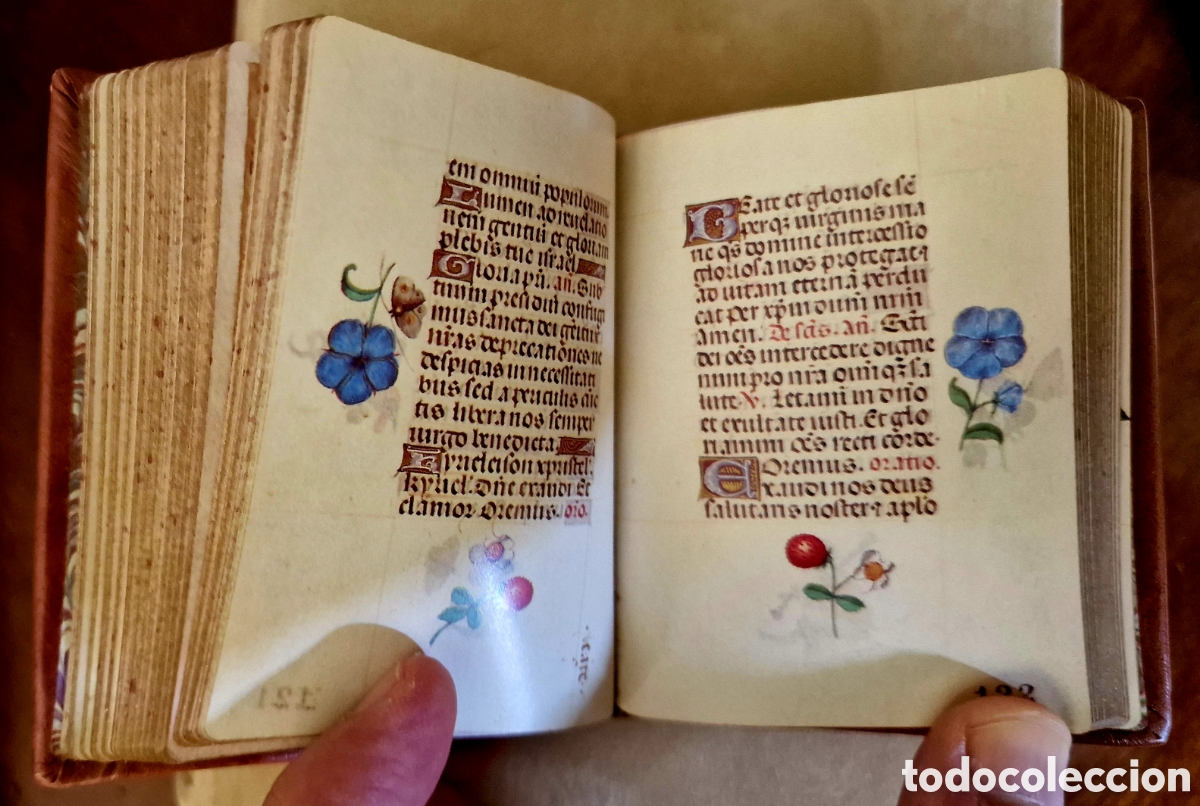 em omniū populorum
Lumen ad reuelatio
nem gentiū et gloriam
plebis tue israel
Gloria pr̄i. an̄. Sub
tuum presidiū confugi
mus sancta dei genitrix
nr̄as deprecationes ne
despicias in necessitati
bus sed a periculis cūc
tis libera nos semper
uirgo benedicta.
Kyrieleison xpristel'.
Kyriel'. Dn̄e exaudi Et
clamor Oremus. oīo.
Beate et gloriose sē
perqꝫ uirginis ma
rie q̄s domine intercessio
gloriosa nos protegat ⁊
ad uitam eternā perdu
cat per xp̄m dnūm nr̄m
amen. De scīs. an̄. Sc̄ti
dei oēs intercedere digne
mini pro nr̄a oniūqꝫ sa
lute. V. Letamī in dn̄o
et exultate iusti. Et glo
riamini oēs recti corde.
Oremus. oratio.
Exaudi nos deus
salutaris noster ⁊ aplo
Beate.
121
122
todocoleccion